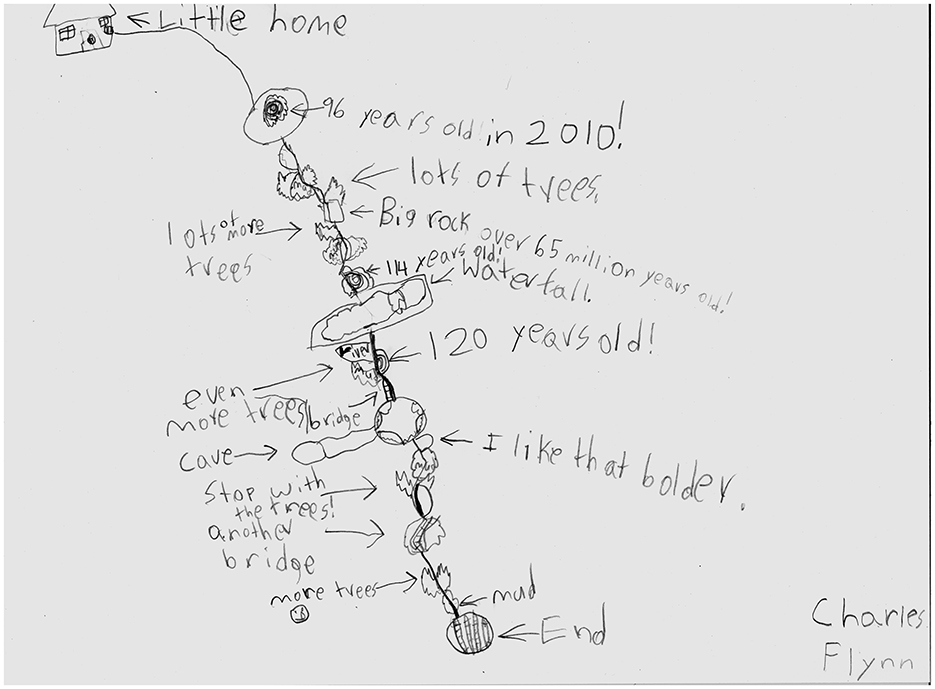 Little home
96 years old in 2010!
lots of trees.
Big rock over 65 million years old!
lots of more
trees
114 years old!
Waterfall.
120 years old!
river
even
more trees
bridge
cave
I like that bolder.
Stop with
the trees!
another
bridge
more trees
mud
End
Charles
Flynn